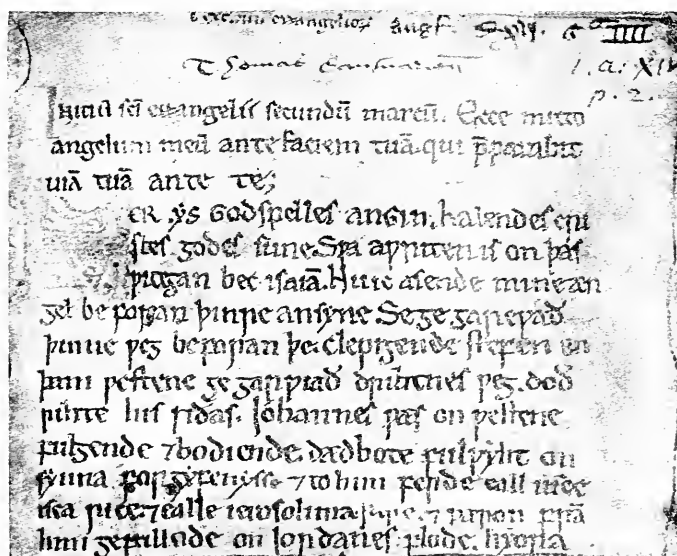 evangelior. Angl. S. XII. G° IIII
Thomas Cantuarien̄ 1. a. XIV
p. 2.
Initiū sc̄i euuangelii secundū marcū. Ecce mitto
angelum meū ante faciem tuā. qui p̄parabit
uiā tuā ante te;
ER ẏs Godspelles angin. halendes cri
stes godes sune. Sƿa aƿriten is on þas
ƿitegan bec isaiā. Nu ic asende mine æn
gel beforan þinre ansyne. Se ge gareƿað
þinne ƿeg beforan þe. clepigende stefen on
þam ƿestene ge garƿiað drihtenes ƿeg. doð
rihte his sidas. Iohannes ƿæs on ƿestene
fulgende ⁊ bodiende. dædbote fulƿyht on
synna forgyfenysse ⁊ to him ferde eall iude
isca rice ⁊ ealle ierosolima ƿare. ⁊ ƿæron frā
him gefullode on iordanes flode. hyora